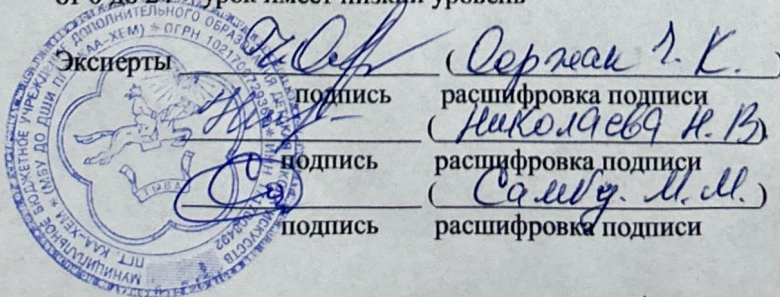 урок имеет низкий уровень
Эксперты (Ооржак Ч. К.)
подпись расшифровка подписи
(Николаева Н. В)
подпись расшифровка подписи
(Самбу. М. М.)
подпись расшифровка подписи
МУНИЦИПАЛЬНОЕ БЮДЖЕТНОЕ УЧРЕЖДЕНИЕ ДОПОЛНИТЕЛЬНОГО
ПГТ. КАА-ХЕМ * (МБУ ДО ДШИ
КАА-ХЕМ) * ОГРН
ТЫВА